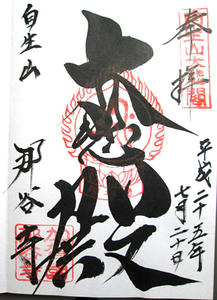 奉拝
平成二十五年
七月二十日
大悲殿
自生山
那谷寺